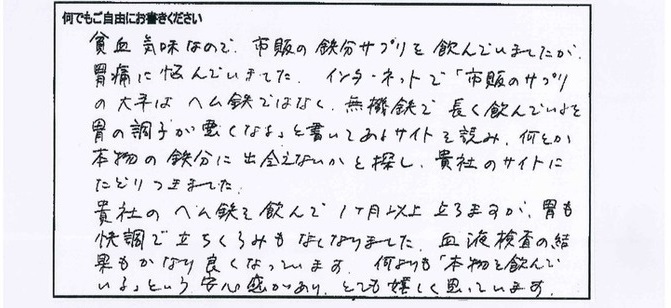 何でもご自由にお書きください
貧血気味なので、市販の鉄分サプリを飲んでいましたが、
胃痛に悩んでいました。インターネットで「市販のサプリ
の大半はヘム鉄ではなく、無機鉄で長く飲んでいると
胃の調子が悪くなる」と書いてあるサイトを読み、何とか
本物の鉄分に出会えないかと探し、貴社のサイトに
たどりつきました。
貴社のヘム鉄を飲んで1ヶ月以上立ちますが、胃も
快調で立ちくらみもなくなりました。血液検査の結
果もかなり良くなっています。何よりも「本物を飲んで
いる」という安心感があり、とても嬉しく思っています。